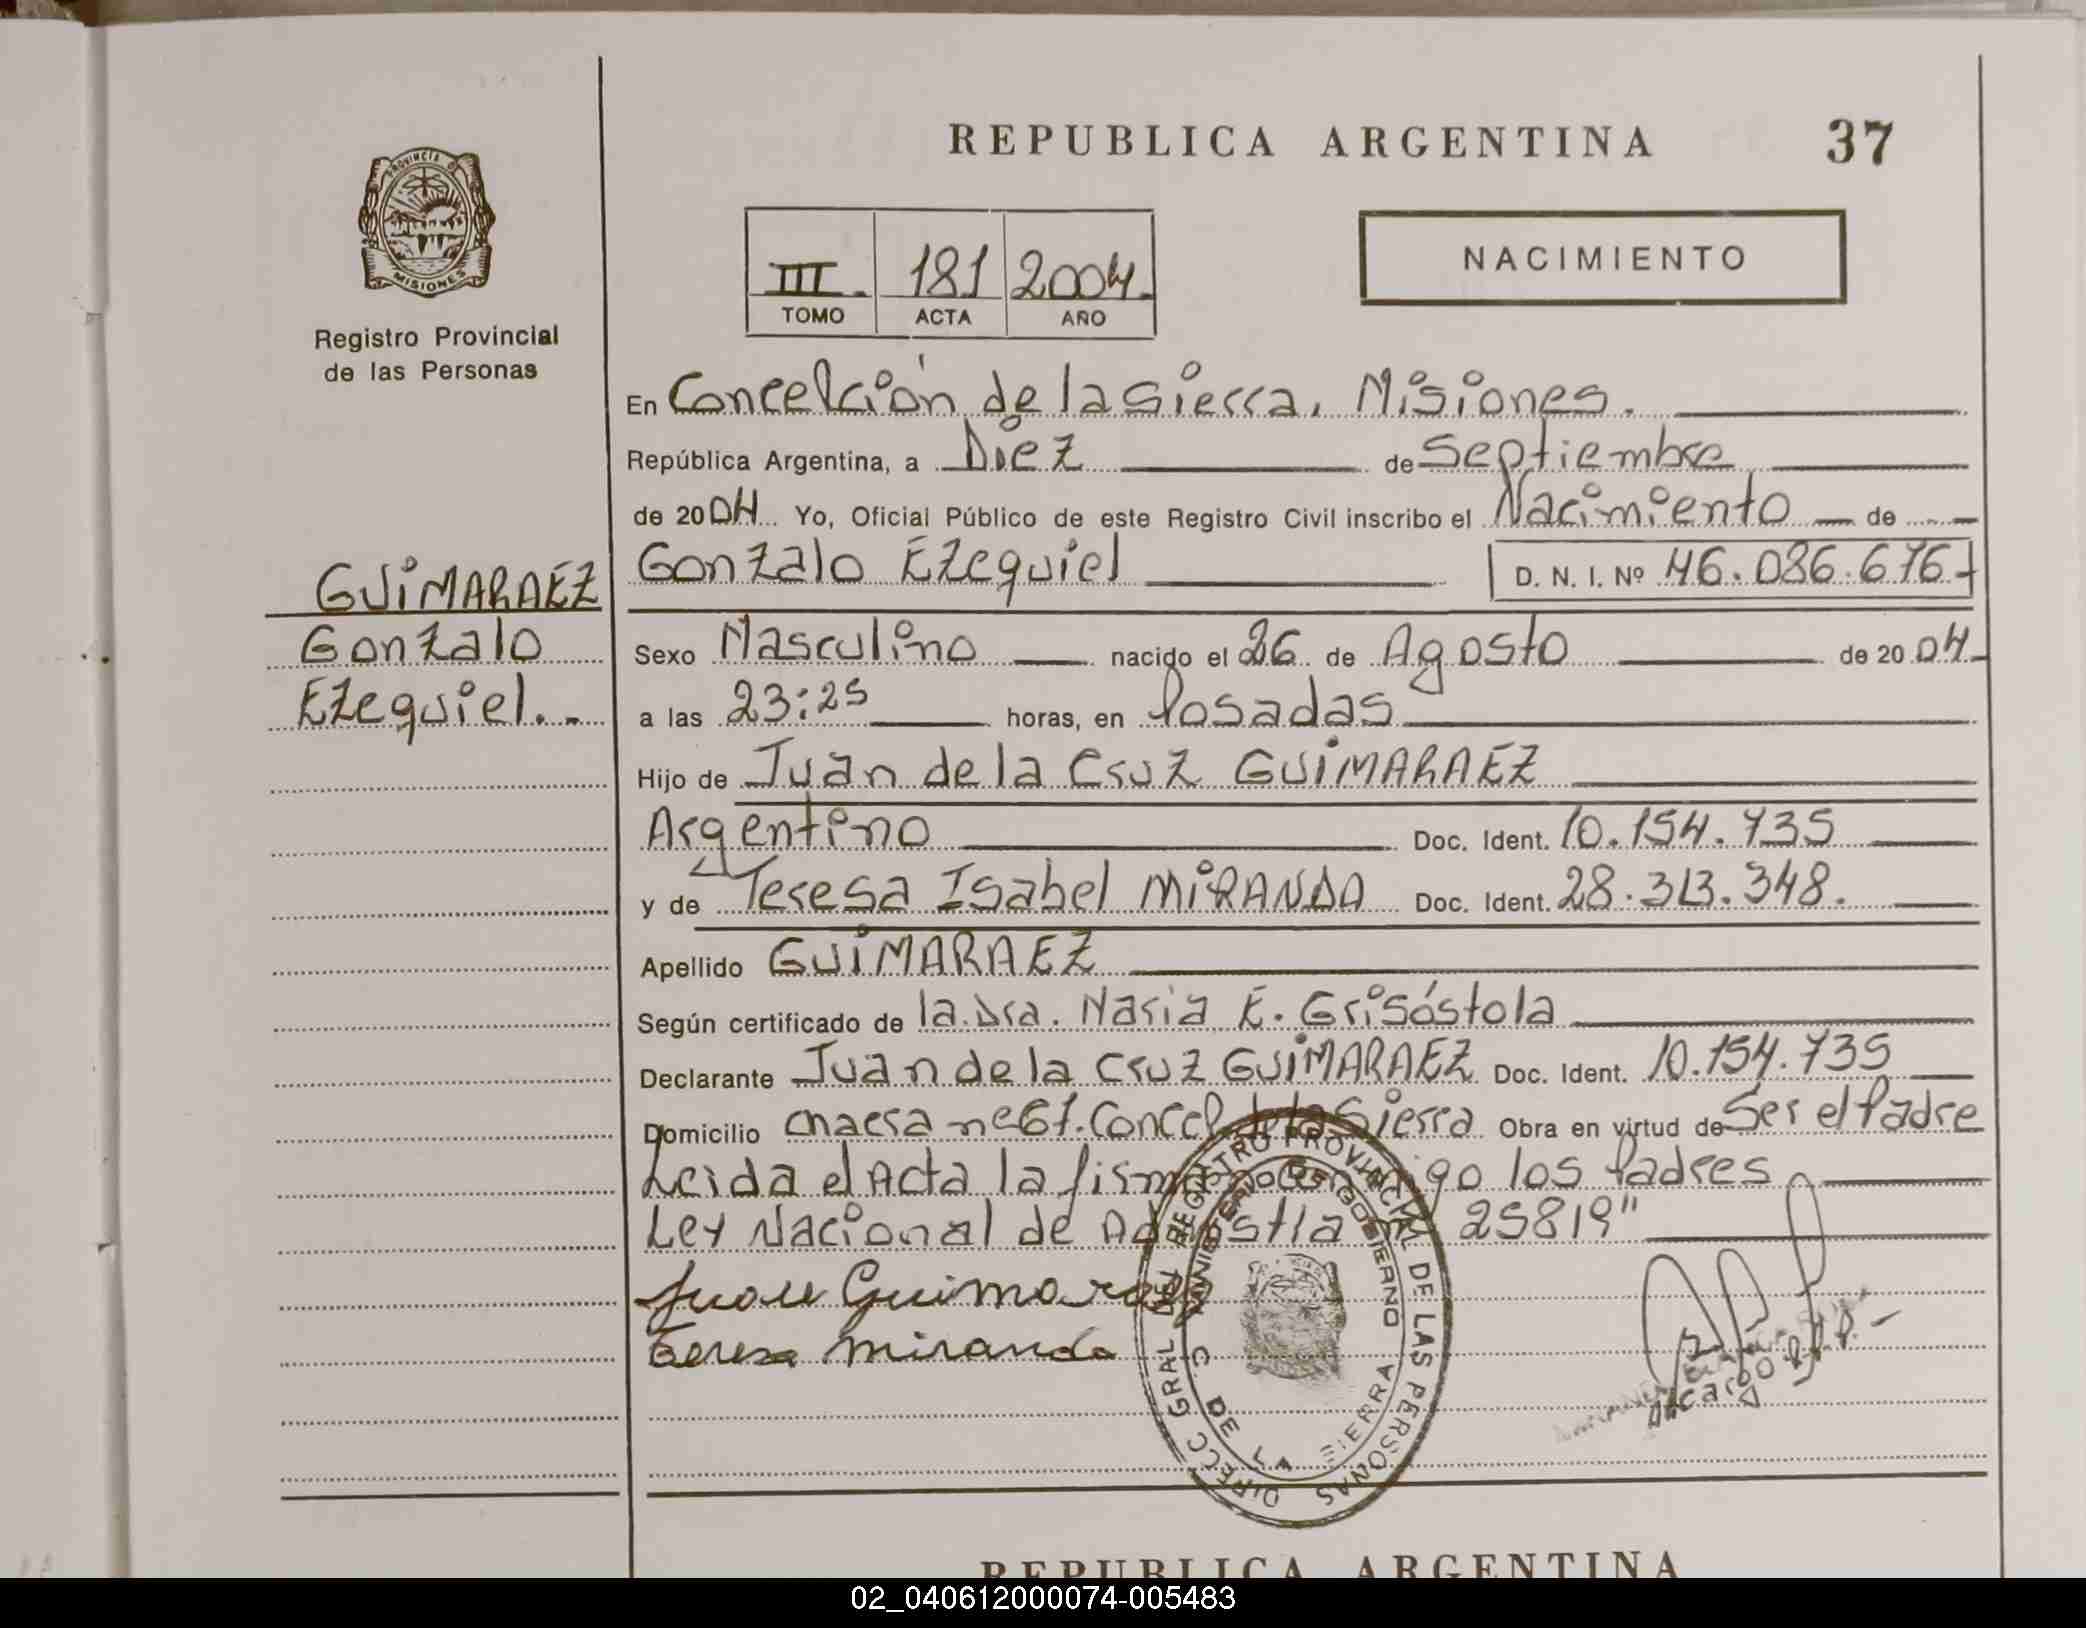 REPUBLICA ARGENTINA
37
PROVINCIA DE
MISIONES
Registro Provincial
de las Personas
III. 181 2004.
TOMO ACTA AÑO
NACIMIENTO
En Concepción de la Sierra, Misiones.
República Argentina, a Diez de Septiembre
de 2004 Yo, Oficial Público de este Registro Civil inscribo el Nacimiento de
Gonzalo Ezequiel D. N. I. Nº 46.086.676
GUIMARAEZ
Gonzalo
Ezequiel.
Sexo Masculino nacido el 26 de Agosto de 2004
a las 23:25 horas, en Posadas
Hijo de Juan de la Cruz GUIMARAEZ
Argentino Doc. Ident. 10.154.735
y de Teresa Isabel MIRANDA Doc. Ident. 28.313.348.
Apellido GUIMARAEZ
Según certificado de la Dra. Maria E. Grisóstola
Declarante Juan de la Cruz GUIMARAEZ Doc. Ident. 10.154.735
Domicilio chacra nº61. Concep de la Sierra Obra en virtud de Ser el Padre
Leida el Acta la firman los Padres
Ley Nacional de 25819"
Juan Guimaraez
Teresa Miranda
DIRECC GRAL DEL REGISTRO PROVINCIAL DE LAS PERSONAS
MINISTERIO DE GOBIERNO
C. DE LA SIERRA
A cargo
REPUBLICA ARGENTINA
02_040612000074-005483